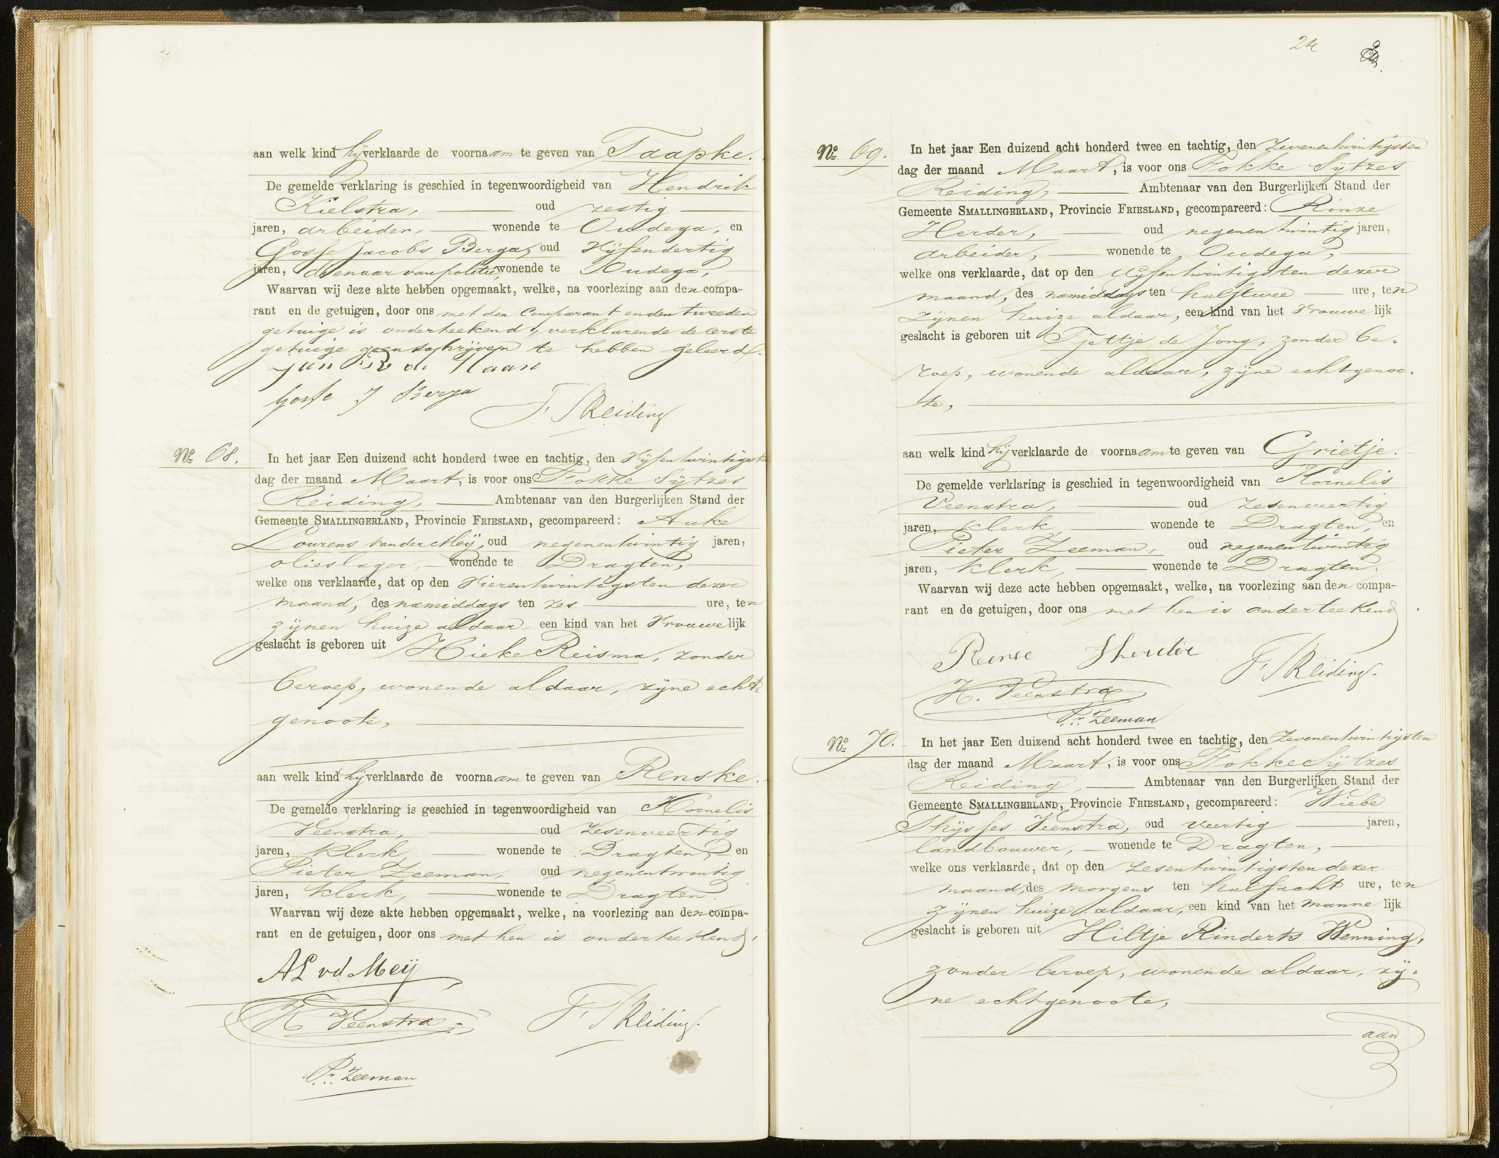 aan welk kind hij verklaarde de voornaam te geven van Taapke.
De gemelde verklaring is geschied in tegenwoordigheid van Hendrik
Kielstra, oud zestig
jaren, arbeider, wonende te Oudega, en
Gosse Jacobs Berga, oud vijfendertig
jaren, dienaar van politie, wonende te Oudega,
Waarvan wij deze akte hebben opgemaakt, welke, na voorlezing aan den compa-
rant en de getuigen, door ons met den Comparant en den tweeden
getuige is onderteekend, verklarende de eerste
getuige geen schrijven te hebben geleerd.
Jan R de Haan
Gosse J Berga
F S Reiding
No. 68. In het jaar Een duizend acht honderd twee en tachtig, den vijfentwintigsten
dag der maand Maart, is voor ons Fokke Sijtzes
Reiding, Ambtenaar van den Burgerlijken Stand der
Gemeente Smallingerland, Provincie Friesland, gecompareerd: Auke
Lourens van der Meij, oud negenentwintig jaren,
olieslager, wonende te Dragten,
welke ons verklaarde, dat op den vierentwintigsten dezer
maand, des namiddags ten zes ure, ten
zijnen huize aldaar een kind van het vrouwelijk
geslacht is geboren uit Hieke Reisma, zonder
beroep, wonende aldaar, zijne echt-
genoote,
aan welk kind hij verklaarde de voornaam te geven van Renske.
De gemelde verklaring is geschied in tegenwoordigheid van Kornelis
Veenstra, oud zesenveertig
jaren, klerk, wonende te Dragten, en
Pieter Zeeman, oud negenentwintig
jaren, klerk, wonende te Dragten.
Waarvan wij deze akte hebben opgemaakt, welke, na voorlezing aan den compa-
rant en de getuigen, door ons met hen is onderteekend,
AL vd Meij
K Veenstra
F S Reiding.
Pr. Zeeman
24
No. 69. In het jaar Een duizend acht honderd twee en tachtig, den zevenentwintigsten
dag der maand Maart, is voor ons Fokke Sijtzes
Reiding, Ambtenaar van den Burgerlijken Stand der
Gemeente Smallingerland, Provincie Friesland, gecompareerd: Rinze
Herder, oud negenentwintig jaren,
arbeider, wonende te Oudega,
welke ons verklaarde, dat op den vijfentwintigsten dezer
maand, des namiddags ten half twee ure, ten
zijnen huize aldaar, een kind van het vrouwelijk
geslacht is geboren uit Tjettje de Jong, zonder be-
roep, wonende aldaar, zijne echtgenoo-
te,
aan welk kind hij verklaarde de voornaam te geven van Grietje.
De gemelde verklaring is geschied in tegenwoordigheid van Kornelis
Veenstra, oud zesenveertig
jaren, klerk, wonende te Dragten, en
Pieter Zeeman, oud negenentwintig
jaren, klerk, wonende te Dragten.
Waarvan wij deze acte hebben opgemaakt, welke, na voorlezing aan den compa-
rant en de getuigen, door ons met hen is onderteekend.
Rinse Herder
F S Reiding.
K. Veenstra
Pr. Zeeman
No. 70. In het jaar Een duizend acht honderd twee en tachtig, den zevenentwintigsten
dag der maand Maart, is voor ons Fokke Sijtzes
Reiding, Ambtenaar van den Burgerlijken Stand der
Gemeente Smallingerland, Provincie Friesland, gecompareerd: Wiebe
Thijsses Veenstra, oud veertig jaren,
landbouwer, wonende te Dragten,
welke ons verklaarde, dat op den zesentwintigsten dezer
maand, des morgens ten half acht ure, ten
zijnen huize aldaar, een kind van het mannelijk
geslacht is geboren uit Hiltje Rinderts Wenning,
zonder beroep, wonende aldaar, zij-
ne echtgenoote,
aan